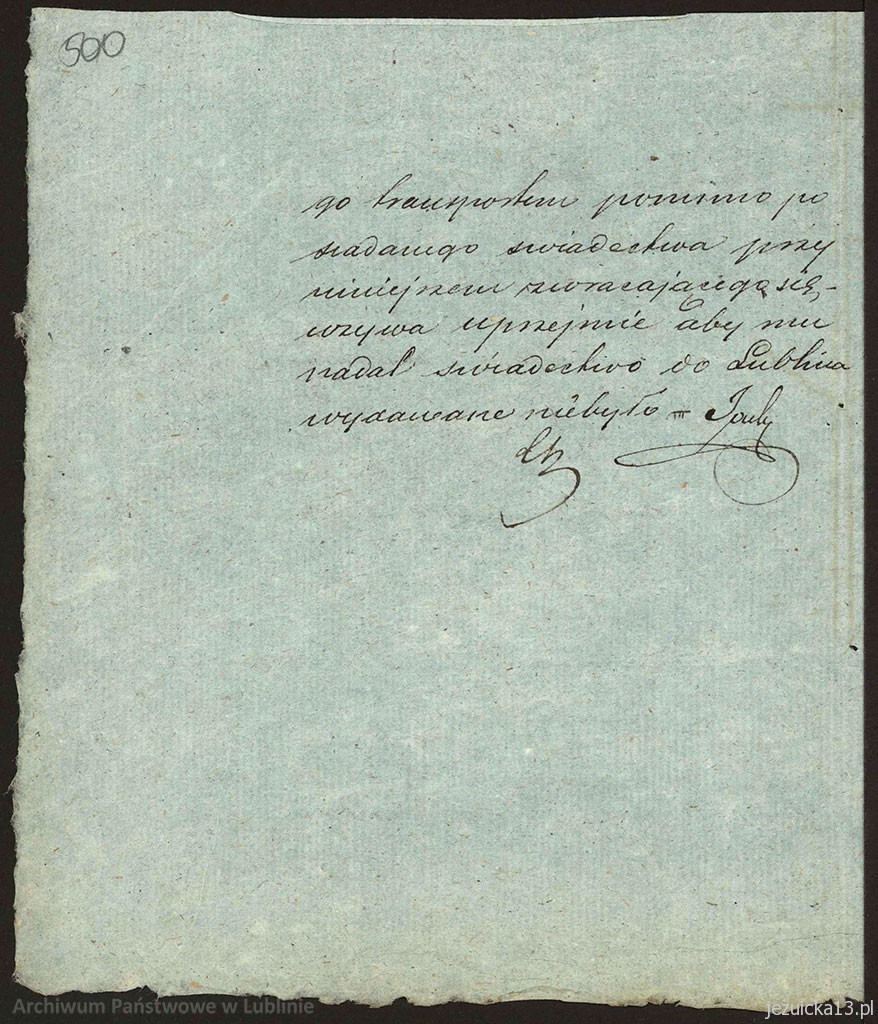 500
go transportem pomimo po
siadanego swiadectwa przy
niniejszem zwracającego się,-
wzywa uprzejmie aby mu
nadal swiadectwo do Lublina
wydawane niebyło =
Archiwum Państwowe w Lublinie
jezuicka13.pl